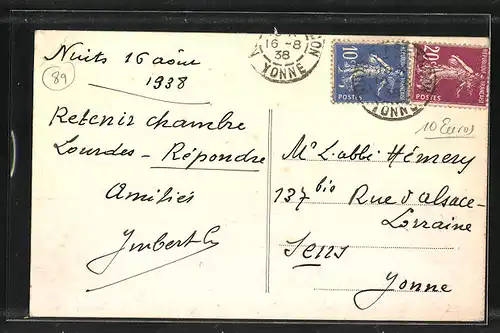 Nuits 16 août
1938
89
Retenir chambre
Lourdes - Répondre
Amitiés
Imbert
16-8
38
YONNE
10c
POSTES
20c
REPUBLIQUE FRANCAISE
POSTES
YONNE
10 Euros
Mr L'abbé Hémery
137 bis Rue d'Alsace-
Lorraine
Sens
Yonne